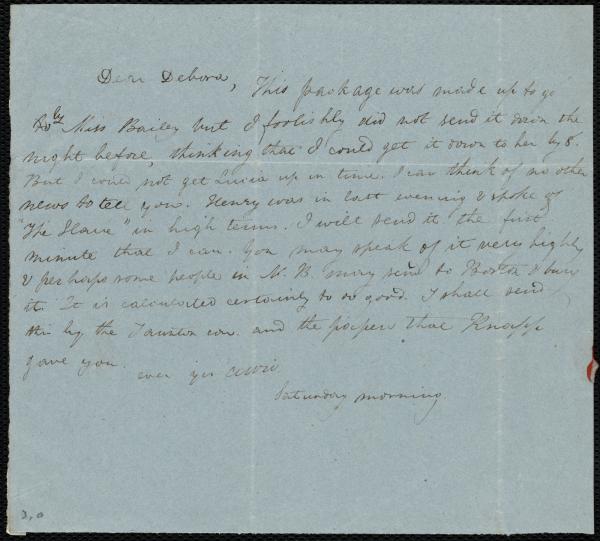 Dear Debora, This package was made up to go
by Miss Bailey but I foolishly did not send it down the
night before, thinking that I could get it down to her by 8.
But I could not get Lucia up in time. I can think of no other
news to tell you. Henry was in last evening & spoke of
"The Slave" in high terms. I will send it the first
minute that I can. You may speak of it very highly
& perhaps some people in N. B. may send to Boston & buy
it. It is calculated certainly to do good. I shall send
this by the Taunton con. and the papers that Knapp
gave you.
ever yrs
Saturday morning.